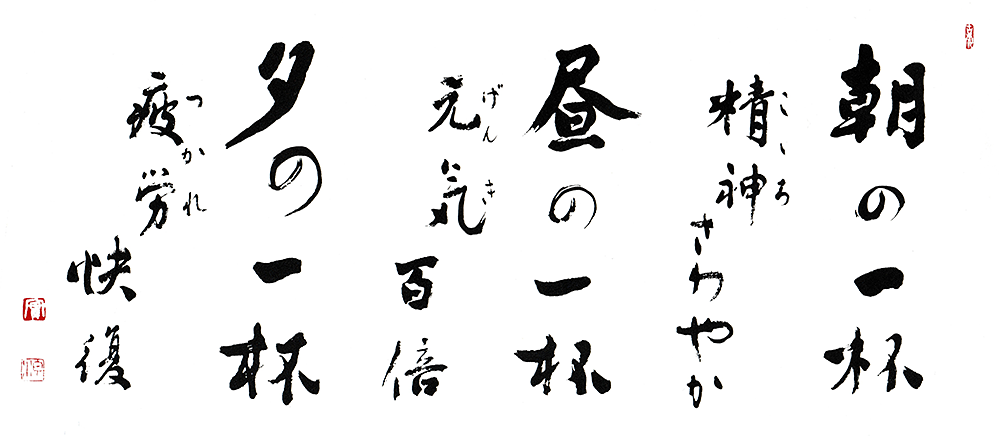 朝の一杯
精神さわやか
こゝろ
昼の一杯
元気百倍
げんき
夕の一杯
疲労快復
つかれ